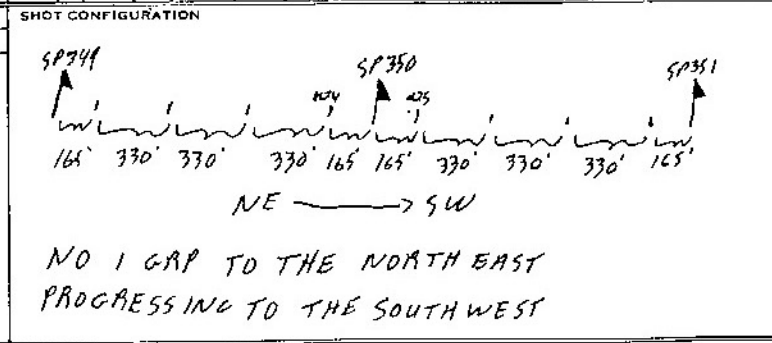 SHOT CONFIGURATION
SP349 SP350 SP351
165' 330' 330' 330' 165' 165' 330' 330' 330' 165'
NE SW
NO 1 GRP TO THE NORTH EAST
PROGRESSING TO THE SOUTHWEST